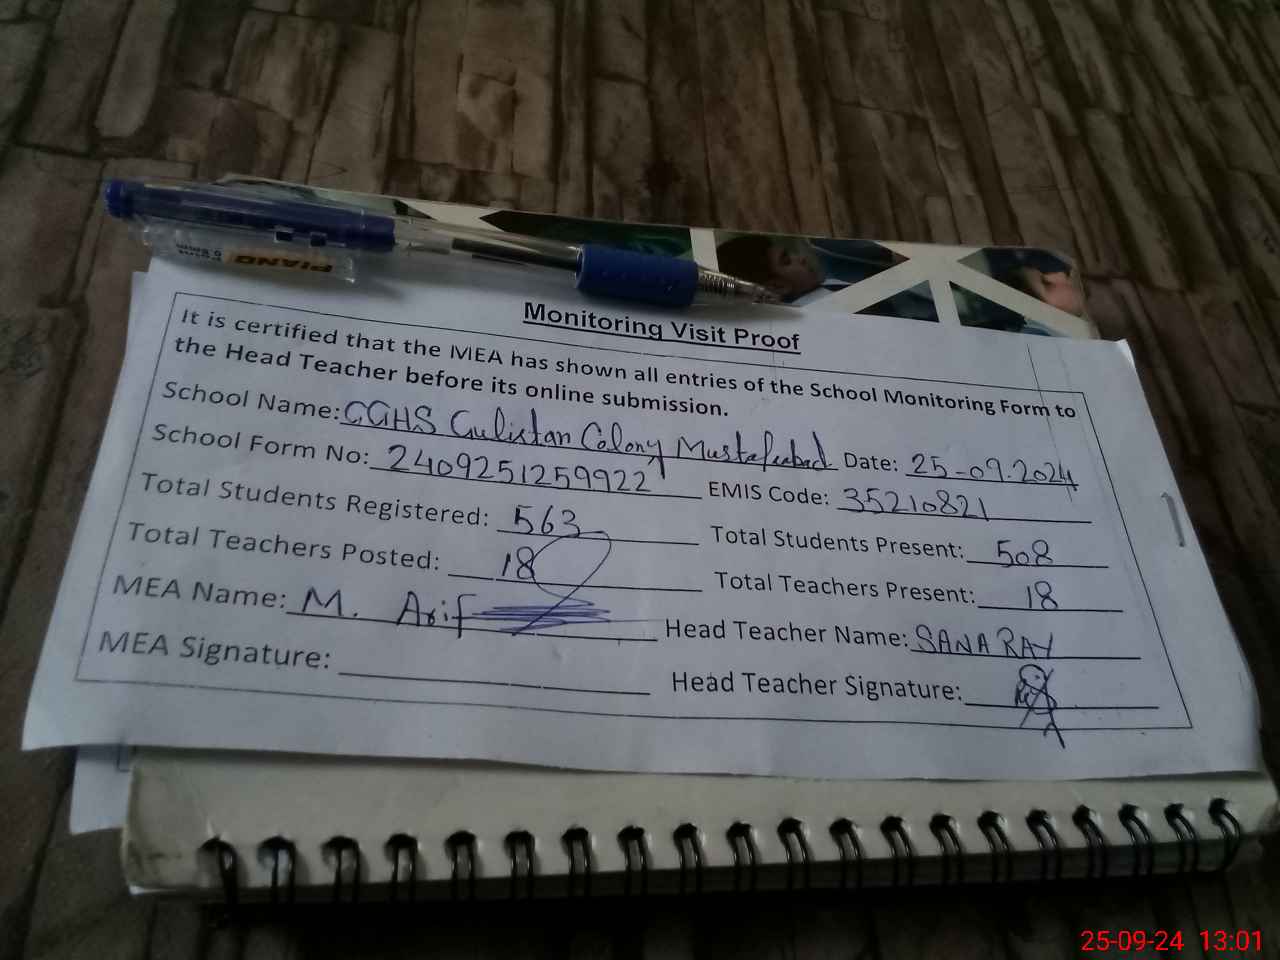 PIANO
Monitoring Visit Proof
It is certified that the MEA has shown all entries of the School Monitoring Form to
the Head Teacher before its online submission.
School Name: CGHS Gulistan Colony Mustafabad Date: 25-09-2024
School Form No: 2409251259922 EMIS Code: 35210821
Total Students Registered: 563 Total Students Present: 508
Total Teachers Posted: 18 Total Teachers Present: 18
MEA Name: M. Arif Head Teacher Name: SANA RAY
MEA Signature: Head Teacher Signature:
25-09-24 13:01